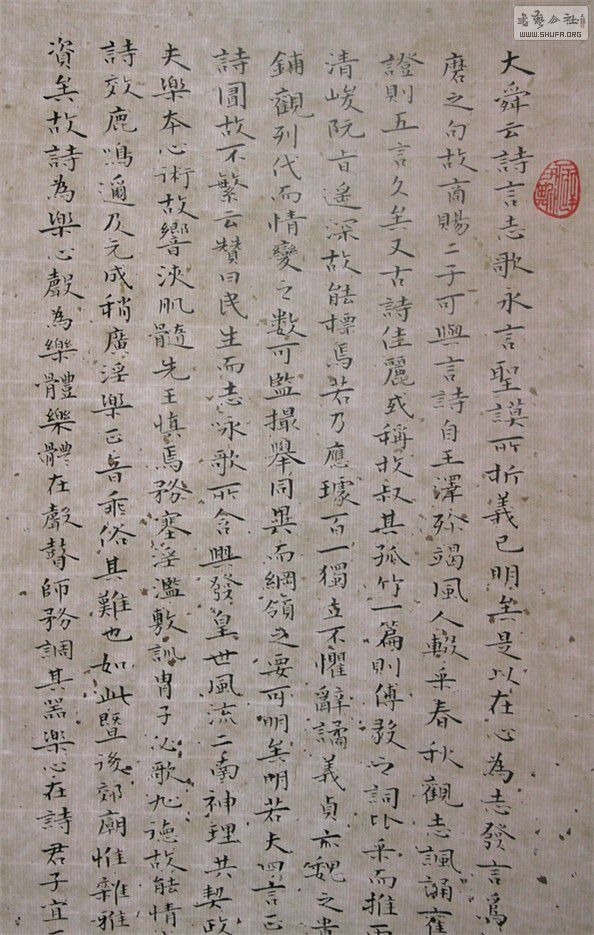 書藝公社
WWW.SHUFA.ORG
大舜云詩言志歌永言聖謨所折義已明矣是以在心為志發言為
磨之句故商賜二子可與言詩自王澤殄竭風人輟采春秋觀志諷誦舊
證則五言久矣又古詩佳麗或稱枚叔其孤竹一篇則傅毅之詞比采而推
清峻阮旨遙深故能標焉若乃應璩百一獨立不懼辭譎義貞亦魏之
鋪觀列代而情變之数可監撮舉同異而綱領之要可明矣明若夫四言正
詩囿故不繁云贊曰民生而志咏歌所含興發皇世風流二南神理共契政
夫樂本心術故響浹肌髓先王慎焉務塞淫濫敷訓胄子必歌九德故能情
詩效鹿鳴邇及元成稍廣淫樂正音乖俗其難也如此暨後郊廟惟雜雅
資矣故詩為樂心聲為樂體樂體在聲瞽師務調其器樂心在詩君子宜